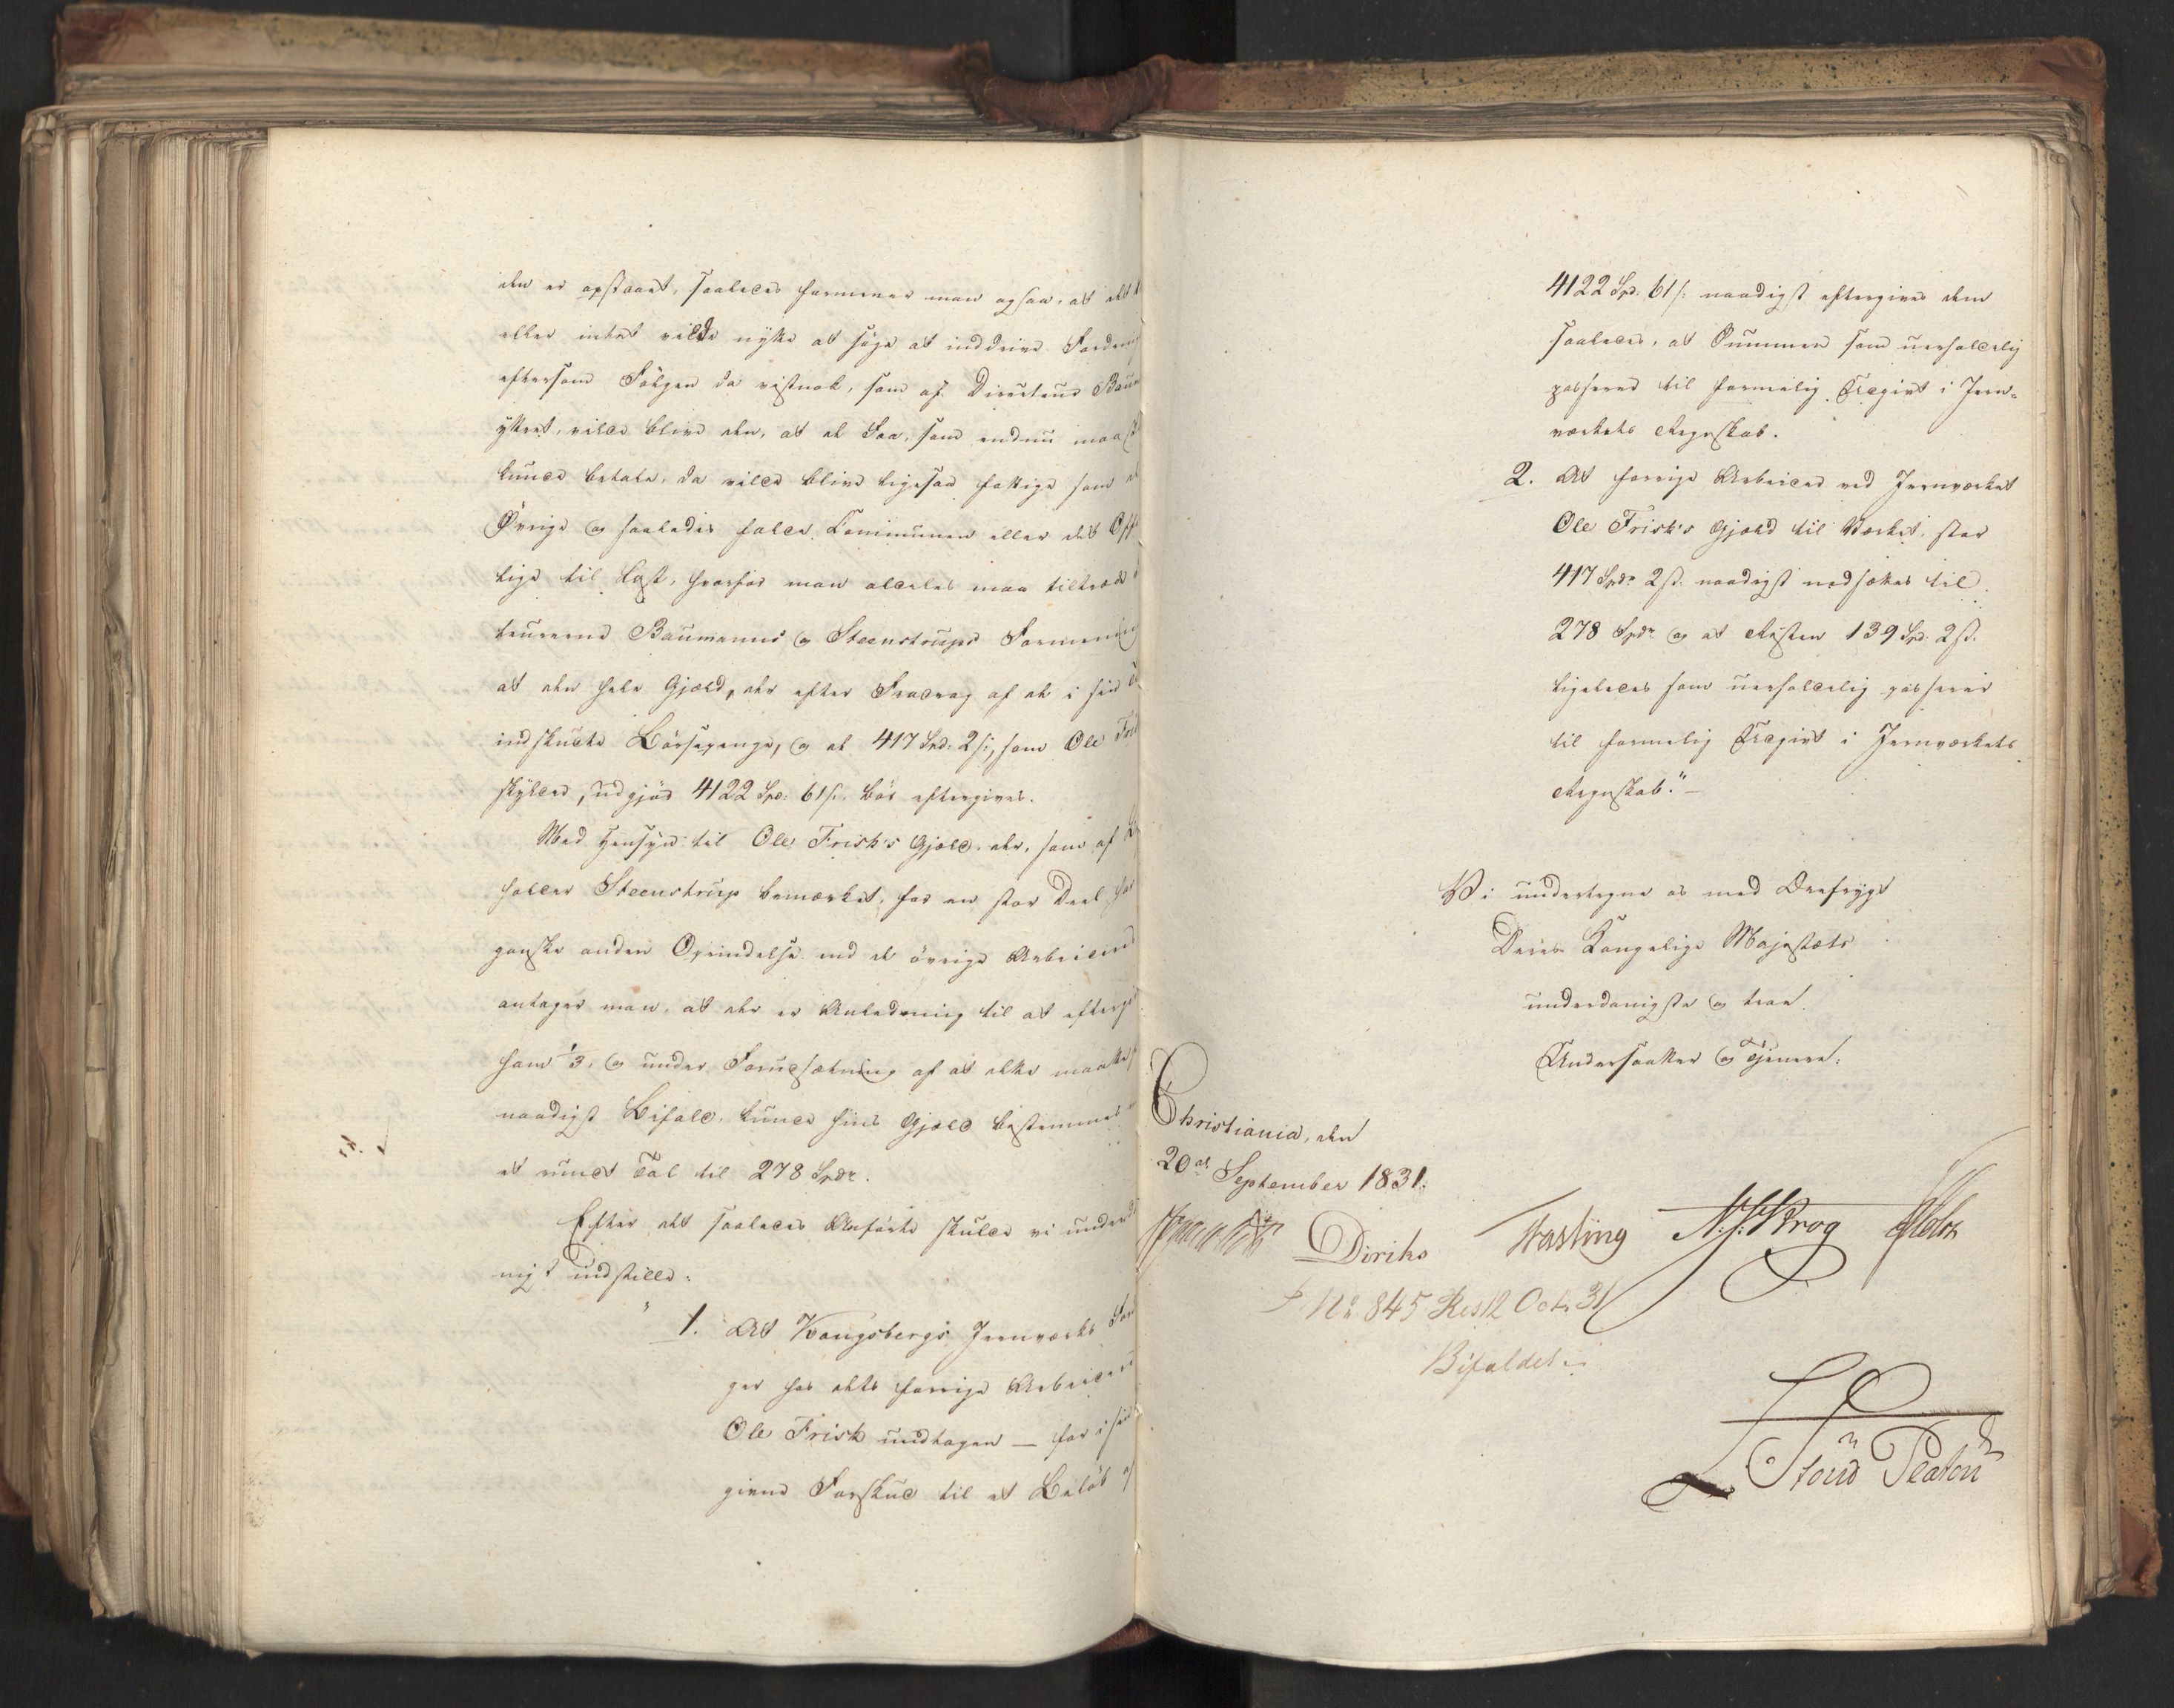 den er opstaaet, saaledes formener man ogsaa, at det
eller intet vilde nytte at søge at inddrive
eftersom Følgen da vistnok, som af Directeur
yttret, vilde blive den, at de Faa, som endnu
kunde betale, da vilde blive ligesaa fattige som
Øvrige og saaledes falde Communen eller det
lige til Last, hvorfor man aldeles maa tiltræde
teurerne Baumanns og Steenstrups Formening
at den hele Gjæld, der efter Fradrag af de i sin
indskudte Børsepenge, og de 417 Spd. 2 ß, som Ole
skylder, udgjør 4122 Spd. 61 ß. bør eftergives.
Med Hensyn til Ole Frisk's Gjæld, der, som af
holder Steenstrup bemærket, for en stor Deel har
ganske anden Oprindelse end de øvrige
antager man, at der er Anledning til at
ham 1/3, og under Forudsætning af at dette
naadigst Bifald, kunde hans Gjæld bestemmes
et rundt Tal til 278 Spdr.
Efter det saaledes Anførte skulde vi
nigst indstille:
" 1. At Kongsbergs Jernværks
ger hos dets forrige Arbeidere
Ole Frisk undtagen — for i sin
givne Forskud til et Beløb af
4122 Spd. 61 ß: naadigst eftergives dem
saaledes, at Summen som uerholdelig
passerer til formelig Udgivt i Jern-
værkets Regnskab.
2. At forrige Arbeider ved Jernværket
Ole Frisk's Gjæld til Værket, stor
417 Spdr 2 ß. naadigst nedsættes til
278 Spdr og at Resten 139 Spd. 2 ß.
ligeledes som uerholdelig passerer
til formelig Udgivt i Jernværkets
Regnskab." —
Vi undertegne os med Ærefrygt
Deres Kongelige Majestæts
underdanigste og troe
Undersaatter og Tjenere.
Christiania, den
20de September 1831.
Diriks Fasting N. J. Krog Holst
No. 845 Res 12 Octr 31
Bifaldet
Stoud Platou